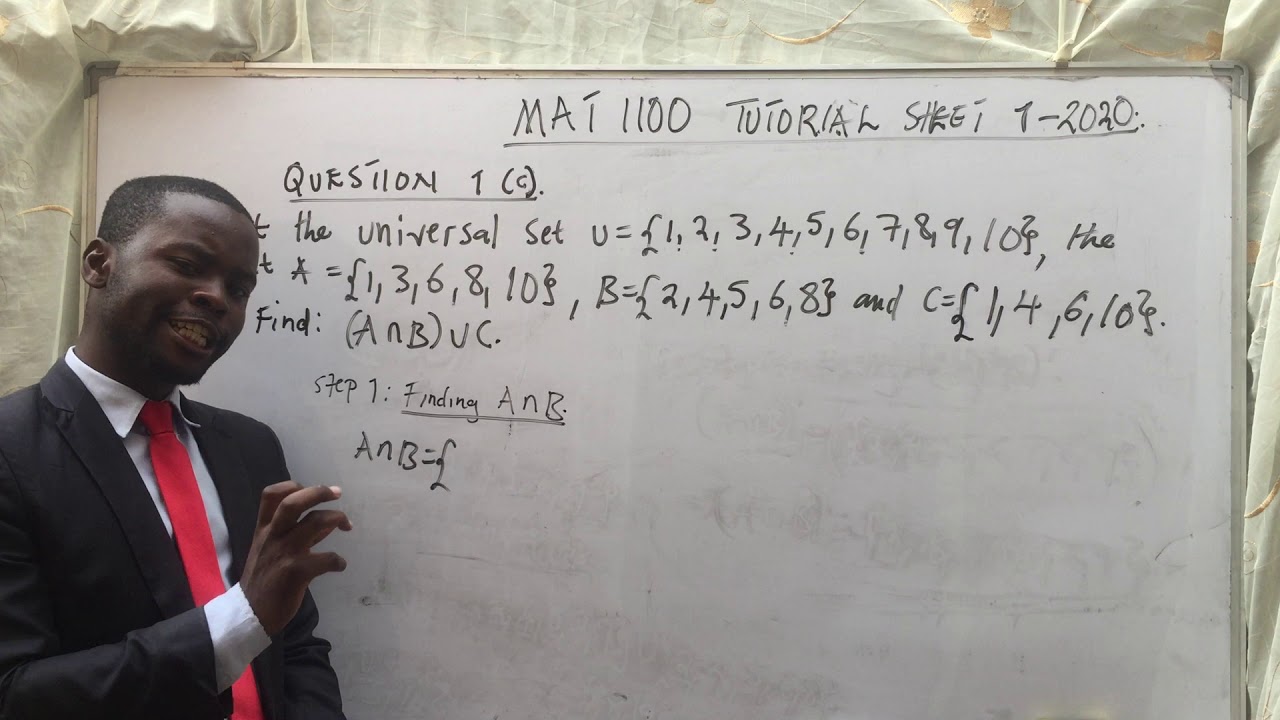 MAT 1100 TUTORIAL SHEET 1-2020.
QUESTION 1 (c).
the universal set U={1,2,3,4,5,6,7,8,9,10}, the
A={1,3,6,8,10}, B={2,4,5,6,8} and C={1,4,6,10}.
Find: (A∩B)∪C.
Step 1: Finding A∩B.
A∩B={